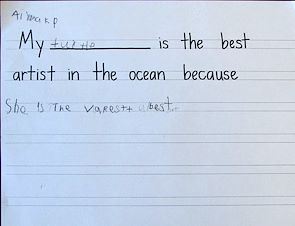 My turtle is the best
artist in the ocean because
She is The varesTt best.